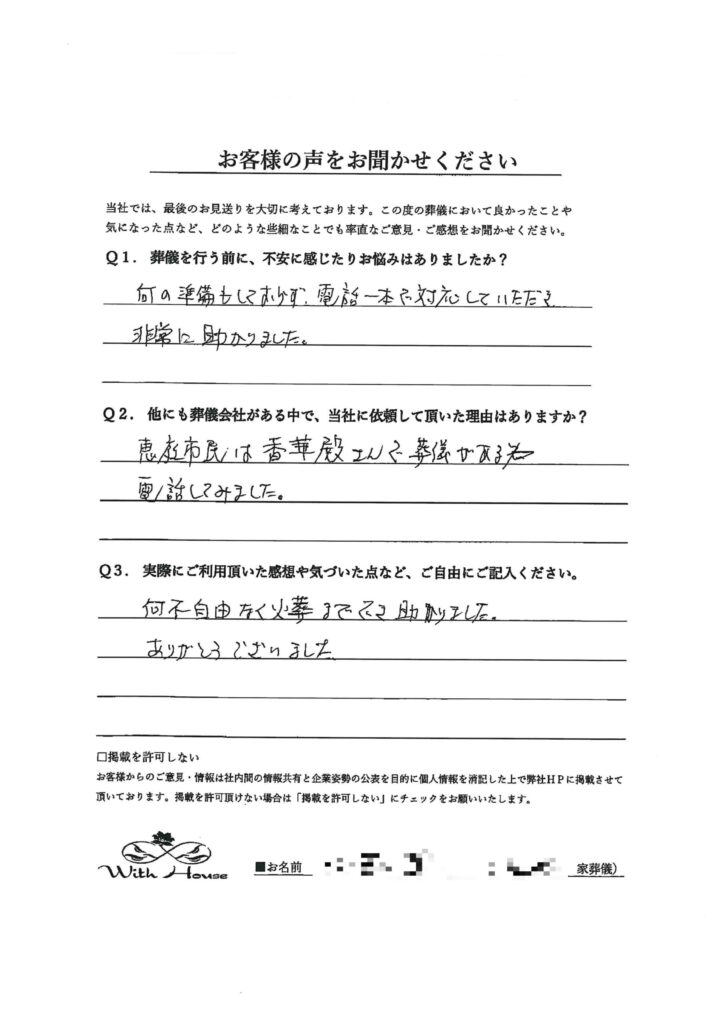 お客様の声をお聞かせください
当社では、最後のお見送りを大切に考えております。この度の葬儀において良かったことや
気になった点など、どのような些細なことでも率直なご意見・ご感想をお聞かせください。
Q1. 葬儀を行う前に、不安に感じたりお悩みはありましたか？
何の準備もしておらず、電話一本で対応していただき
非常に助かりました。
Q2. 他にも葬儀会社がある中で、当社に依頼して頂いた理由はありますか？
恵庭市民は香華殿さんで葬儀がある為
電話してみました。
Q3. 実際にご利用頂いた感想や気づいた点など、ご自由にご記入ください。
何不自由なく火葬まででき助かりました。
ありがとうございました
□掲載を許可しない
お客様からのご意見・情報は社内間の情報共有と企業姿勢の公表を目的に個人情報を消記した上で弊社HPに掲載させて
頂いております。掲載を許可頂けない場合は「掲載を許可しない」にチェックをお願いいたします。
With House
■お名前
家葬儀）